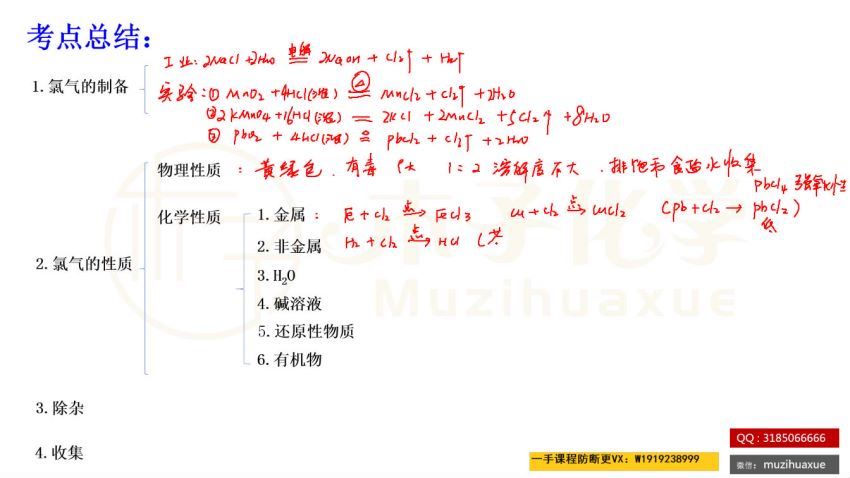 考点总结：
工业: 2NaCl + 2H₂O 电解 = 2NaOH + Cl₂↑ + H₂↑
1. 氯气的制备
实验: ① MnO₂ + 4HCl(浓) △ = MnCl₂ + Cl₂↑ + 2H₂O
② 2KMnO₄ + 16HCl(浓) = 2KCl + 2MnCl₂ + 5Cl₂↑ + 8H₂O
③ PbO₂ + 4HCl(浓) △ = PbCl₂ + Cl₂↑ + 2H₂O
物理性质 : 黄绿色. 有毒 ρ大 1:2 溶解度不大. 排饱和食盐水收集
PbCl₄ 强氧化性
化学性质
1. 金属: Fe + Cl₂ 点→ FeCl₃ Cu + Cl₂ 点→ CuCl₂ (Pb + Cl₂ → PbCl₂)
低
2. 非金属 H₂ + Cl₂ 点→ HCl (苍
2. 氯气的性质
3. H₂O
4. 碱溶液
5. 还原性物质
6. 有机物
木子化学
Muzihuaxue
3. 除杂
4. 收集
QQ：3185066666
一手课程防断更VX：W1919238999
微信：muzihuaxue